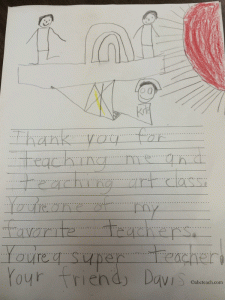 Thank you for
teaching me and
teaching art class.
You're one of my
favorite teachers.
You're a super teacher!
Your friend, Davis